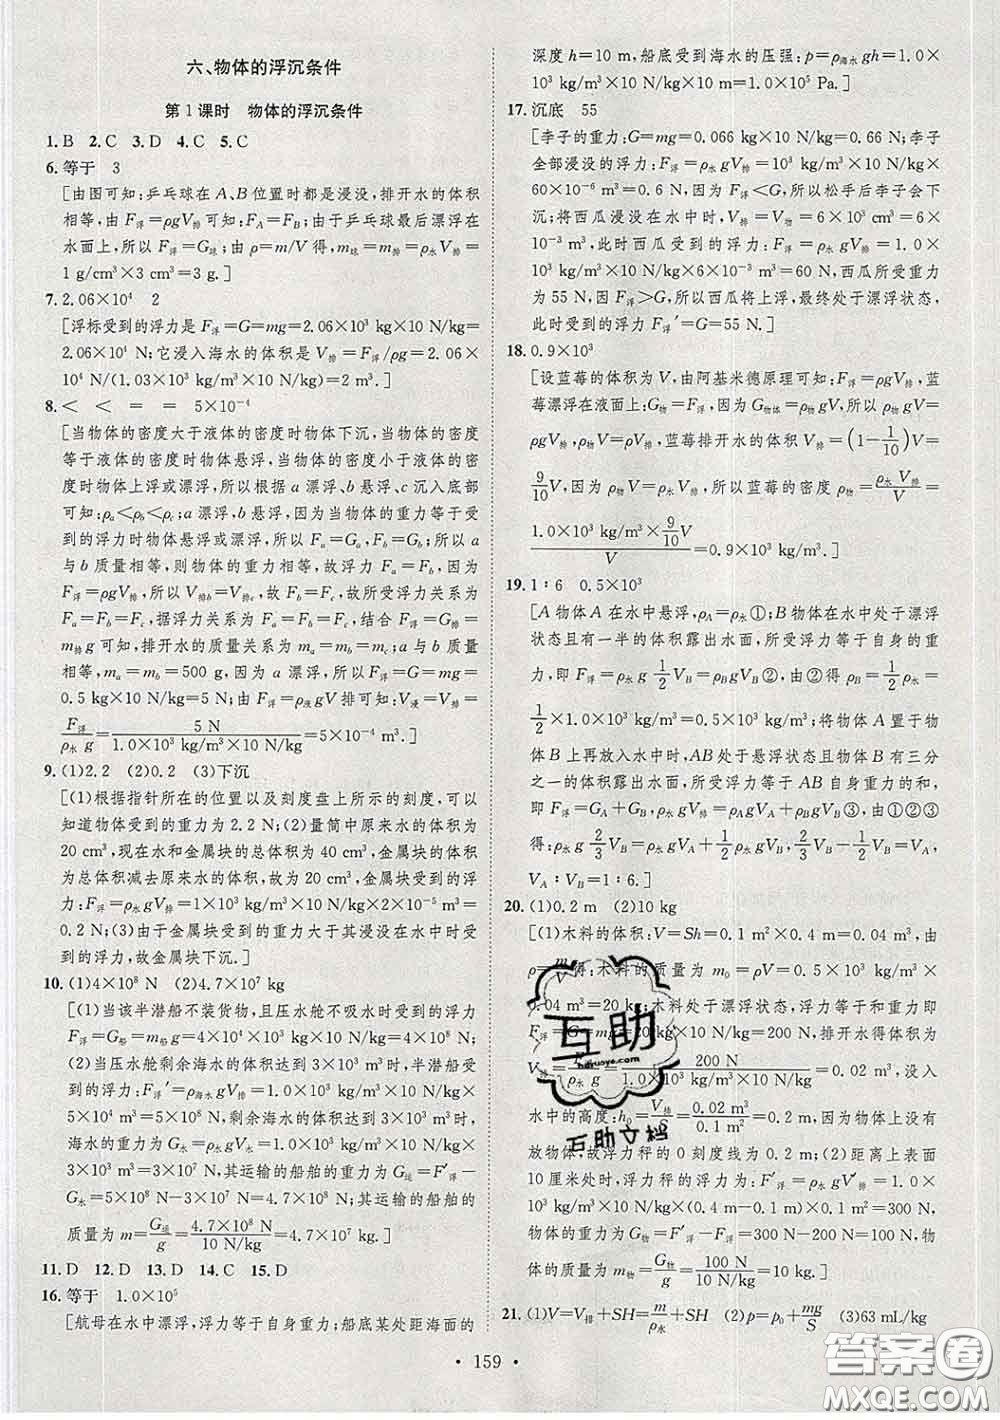 六、物体的浮沉条件
第1课时 物体的浮沉条件
1.B 2.C 3.D 4.C 5.C
6.等于 3
[由图可知:乒乓球在A、B位置时都是浸没,排开水的体积
相等,由F浮=ρgV排可知:FA=FB;由于乒乓球最后漂浮在
水面上,所以F浮=G球;由ρ=m/V得,m球=m排=ρ水V排=
1 g/cm³×3 cm³=3 g.]
7.2.06×10⁴ 2
[浮标受到的浮力是F浮=G=mg=2.06×10³ kg×10 N/kg=
2.06×10⁴ N;它浸入海水的体积是V排=F浮/ρg=2.06×
10⁴ N/(1.03×10³ kg/m³×10 N/kg)=2 m³.]
8.< < = = 5×10⁻⁴
[当物体的密度大于液体的密度时物体下沉,当物体的密度
等于液体的密度时物体悬浮,当物体的密度小于液体的密
度时物体上浮或漂浮,所以根据a漂浮、b悬浮、c沉入底部
可知:ρa<ρb<ρc;a漂浮,b悬浮,因为当物体的重力等于受
到的浮力时物体悬浮或漂浮,所以Fa=Ga,Fb=Gb;由于a
与b质量相等,则物体的重力相等,故浮力Fa=Fb,又由于
F浮=ρgV排,所以Fb=Fc,故Fa=Fb=Fc,故所受浮力关系为
Fa=Fb=Fc,据浮力关系Fa=Fb=Fc,结合F浮=G排=
m排g可知,排开水的质量关系为ma=mb=mc;a与b质量
相等,ma=mb=500 g,因为a漂浮,所以F浮=G=mg=
0.5 kg×10 N/kg=5 N;由F浮=ρ液gV排可知:V浸=V排=
F浮/ρ水g=5 N/(1.0×10³ kg/m³×10 N/kg)=5×10⁻⁴ m³.]
9.(1)2.2 (2)0.2 (3)下沉
[(1)根据指针所在的位置以及刻度盘上所示的刻度,可以
知道物体受到的重力为2.2 N;(2)量筒中原来水的体积为
20 cm³,现在水和金属块的总体积为40 cm³,金属块的体积为
总体积减去原来水的体积,故为20 cm³,金属块受到的浮
力:F浮=ρ水gV排=1.0×10³ kg/m³×10 N/kg×2×10⁻⁵ m³=
0.2 N;(3)由于金属块的重力大于其浸没在水中时受到的
浮力,故金属块下沉.]
10.(1)4×10⁸ N (2)4.7×10⁷ kg
[(1)当该半潜船不装货物,且压水舱不吸水时受到的浮力
F浮=G船=m船g=4×10⁴×10³ kg×10 N/kg=4×10⁸ N;
(2)当压水舱剩余海水的体积达到3×10³ m³时,半潜船受
到的浮力:F浮=ρ海水gV排=1.0×10³ kg/m³×10 N/kg×
5×10⁴ m³=5×10⁸ N,剩余海水的体积达到3×10³ m³时,
海水的重力为G水=ρ水gV水=1.0×10³ kg/m³×10 N/kg×
3×10³ m³=3×10⁷ N,其运输的船舶的重力为G运=F浮-
G水=5×10⁸ N-3×10⁷ N=4.7×10⁸ N,其运输的船舶的
质量为m=G运/g=4.7×10⁸ N/10 N/kg=4.7×10⁷ kg.]
11.D 12.D 13.D 14.C 15.D
16.等于 1.0×10⁵
[航母在水中漂浮,浮力等于自身重力;船底某处距海面的
深度h=10 m,船底受到海水的压强:p=ρ海水gh=1.0×
10³ kg/m³×10 N/kg×10 m=1.0×10⁵ Pa.]
17.沉底 55
[李子的重力:G=mg=0.066 kg×10 N/kg=0.66 N;李子
全部浸没的浮力:F浮=ρ水gV排=1.0×10³ kg/m³×10 N/kg×
60×10⁻⁶ m³=0.6 N;因为F浮<G,所以松手后李子会下
沉;将西瓜浸没在水中时,V排=V物=6×10³ cm³=6×
10⁻³ m³,此时西瓜受到的浮力:F浮=ρ水gV排=1.0×
10³ kg/m³×10 N/kg×6×10⁻³ m³=60 N,西瓜所受重力
为55 N,因F浮>G,所以西瓜将上浮,最终处于漂浮状态,
此时受到的浮力F浮′=G=55 N.]
18.0.9×10³
[设蓝莓的体积为V,由阿基米德原理可知:F浮=ρgV排,蓝
莓漂浮在液面上:G物=F浮,因为G物体=ρgV,所以ρgV=
ρgV排,即:ρV=ρV排,蓝莓排开水的体积V排=(1-1/10)V=
9/10V,因为ρ物V=ρ水V排,所以蓝莓的密度ρ物=ρ水V排/V=
1.0×10³ kg/m³×9/10V/V=0.9×10³ kg/m³.]
19.1∶6 0.5×10³
[A物体A在水中悬浮,ρA=ρ水①;B物体在水中处于漂浮
状态且有一半的体积露出水面,所受浮力等于自身的重
力,即F浮=ρ水g1/2VB=ρBgVB②,由②得ρB=1/2ρ水=
1/2×1.0×10³ kg/m³=0.5×10³ kg/m³;将物体A置于物
体B上再放入水中时,AB处于悬浮状态且物体B有三分
之一的体积露出水面,所受浮力等于AB自身重力的和,
即F浮=GA+GB,ρ水gV排=ρAgVA+ρBgVB③,由①②③
得:ρ水g2/3VB=ρ水gVA+ρ水g1/2VB,VA=2/3VB-1/2VB,
VA∶VB=1∶6.]
20.(1)0.2 m (2)10 kg
[(1)木料的体积:V=Sh=0.1 m²×0.4 m=0.04 m³,由
ρ=m/V得:木料的质量为m0=ρV=0.5×10³ kg/m³×
0.04 m³=20 kg;木料处于漂浮状态,浮力等于重力即
F浮=G=mg=20 kg×10 N/kg=200 N,排开水得体积为
V排=F浮/ρ水g=200 N/1.0×10³ kg/m³×10 N/kg=0.02 m³,没入
水中的高度:h0=V排/S=0.02 m³/0.1 m²=0.2 m,因为物体上没有
放物体,故浮力秤的0刻度线为0.2 m;(2)距离上表面
10厘米处时,浮力秤的浮力为F′浮=ρ水gV′排=1.0×
10³ kg/m³×10 N/kg×0.1 m²×(0.4 m-0.1 m)=300 N,
物体的重力为G物=F′浮-F浮=300 N-200 N=100 N,物
体的质量为m物=G物/g=100 N/10 N/kg=10 kg.]
21.(1)V=V排+SH=m/ρ水+SH (2)p=p₀+mg/S (3)63 mL/kg
• 159 •
互助
hdzuoye.com
互助文档
答案圈
MXQE.COM